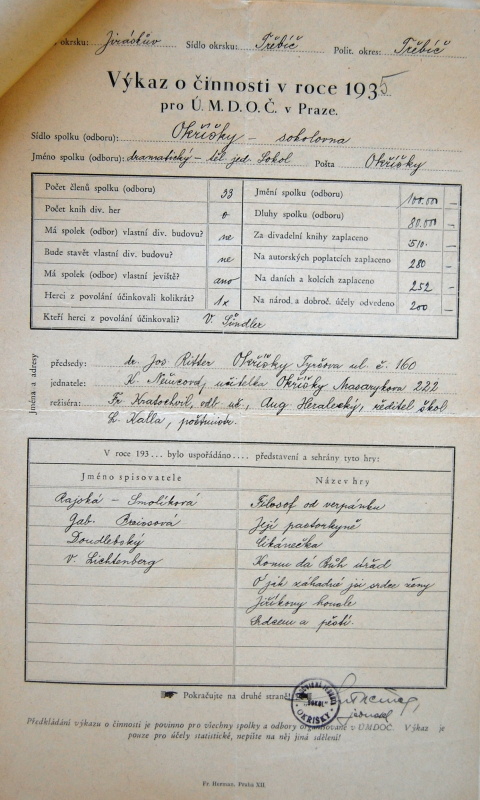 okrsku: Jiráskův Sídlo okrsku: Třebíč Polit. okres: Třebíč
Výkaz o činnosti v roce 1935
pro Ú. M. D. O. Č. v Praze.
Sídlo spolku (odboru): Okříšky – sokolovna
Jméno spolku (odboru): dramatický – těl. jed. Sokol Pošta Okříšky
Počet členů spolku (odboru) 33 Jmění spolku (odboru) 100.000 —
Počet knih div. her 0 Dluhy spolku (odboru) 80.000 —
Má spolek (odbor) vlastní div. budovu? ne Za divadelní knihy zaplaceno 510 —
Bude stavět vlastní div. budovu? ne Na autorských poplatcích zaplaceno 280 —
Má spolek (odbor) vlastní jeviště? ano Na daních a kolcích zaplaceno 252 —
Herci z povolání účinkovali kolikrát? 1x Na národ. a dobroč. účely odvedeno 200 —
Kteří herci z povolání účinkovali? V. Šindler
Jména a adresy
předsedy: dr. Jos Ritter Okříšky Tyršova ul. č. 160
jednatele: K. Němcová, učitelka Okříšky Masarykova 222
režiséra: Fr. Kratochvil, odb. uč., Aug. Heralecký, ředitel škol
Kalla, poštmistr.
V roce 193.... bylo uspořádáno.... představení a sehrány tyto hry:
Jméno spisovatele Název hry
Rajská – Smolíková Filosof od verpánku
Gab. Preissová Její pastorkyně
Doudlebský Cikánečka
V. Lichtenberg Komu dá Bůh úřad
O jak záhadné jsi srdce ženy
Jiříkovy housle
Srdcem a pěstí
Pokračujte na druhé straně!
"SOKOL"
OKŘÍŠKY
jednat.
Předkládání výkazu o činnosti je povinno pro všechny spolky a odbory organisované v ÚMDOČ. Výkaz je
pouze pro účely statistické, nepište na něj jiná sdělení!
Fr. Herman, Praha XII.